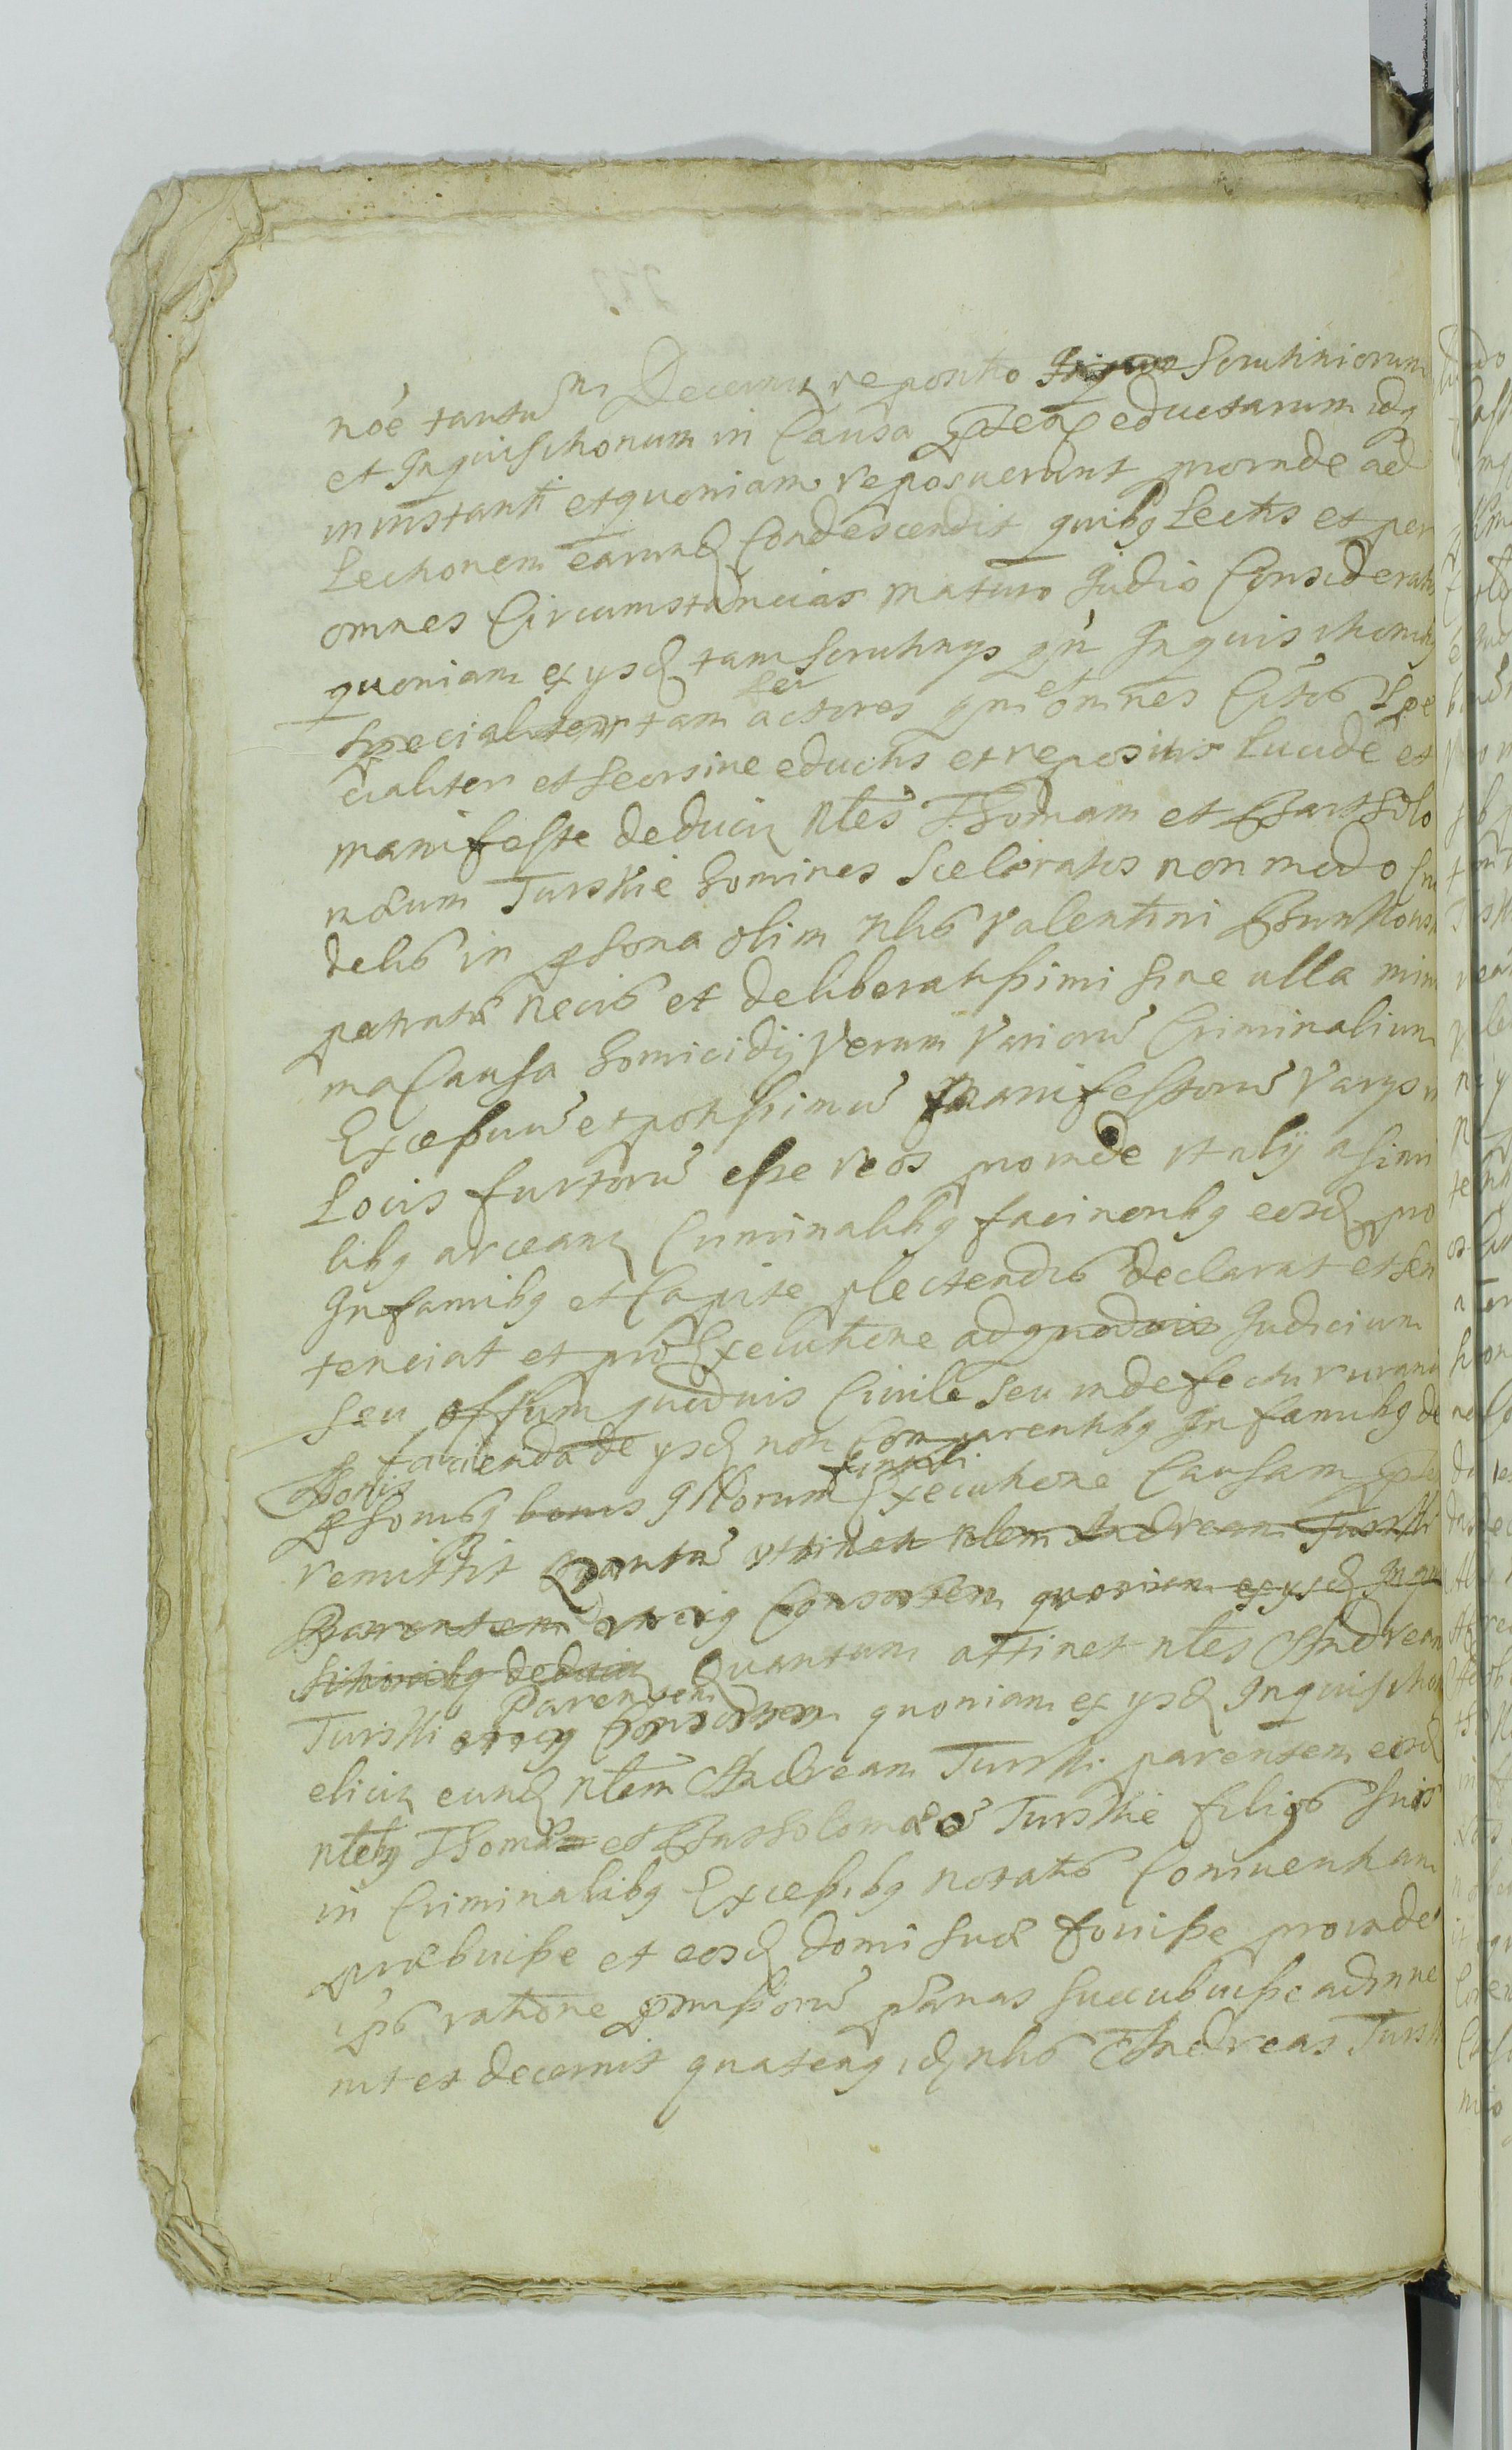 nõe tantum Decernitur repositio Scrutiniorum
et Inquisitionum in Causa eductarum idq
in instanti et quoniam reposuerunt proinde ad
Lectionem earund Condescendit quibq Lectis et per
omnes Circumstancias maturo Judio Consideratis
quoniam ex ysd tam Scrutinys qm Inquisitionibq
Specialiter tam per actores qm et omnes Citos Spe
cialiter et seorsive eductis et repositis Lucide et
manifeste deducitz Nles Thomam et Bartholo
mæum Turskie homines Sceleratos non modo Cru
delis in psona olim Nlis Valentini Bunkows
patratæ Necis et deliberatissimi sine ulla mini
ma Causa homicidij Verum Variorũ Criminalium
Excessuũ et potissimũ Manifestorũ Varys in
Locis furtorũ esse reos proinde ut alij a simi
libq arceantz Criminalibq facinoribq eosd pro
Infamibq et Capite plectendis declarat et sen
tenciat et pro Executione ad quodvis Judicium
seu offium quodvis Civile seu in defectu rurani
facienda de ysd non Comparentibq Infamibq de
Bonis
psonis bonis qz illorum finali Executione Causam
remittit Quantũ attinet Nlem Andream Turski
Parentem eiusq Consortem quoniam ex ysd Inqui
sitionibq deducitz Quantum attinet nles Andream
Turski Parentem eiusq Consortem quoniam ex ysd Inquisition
elicitz eund Nlem Andream Turski parentem eosd
nlebq Thomæ et Bartholomæo Turskie filijs suis
in Criminalibq Excessibq notatis Conniventiam
præbuisse et eosd domi suæ fovisse proinde
ipõs ratione pmissorũ pænas succubuisse adinve
nit et decernit quatenq idz nlis Andreas Turski